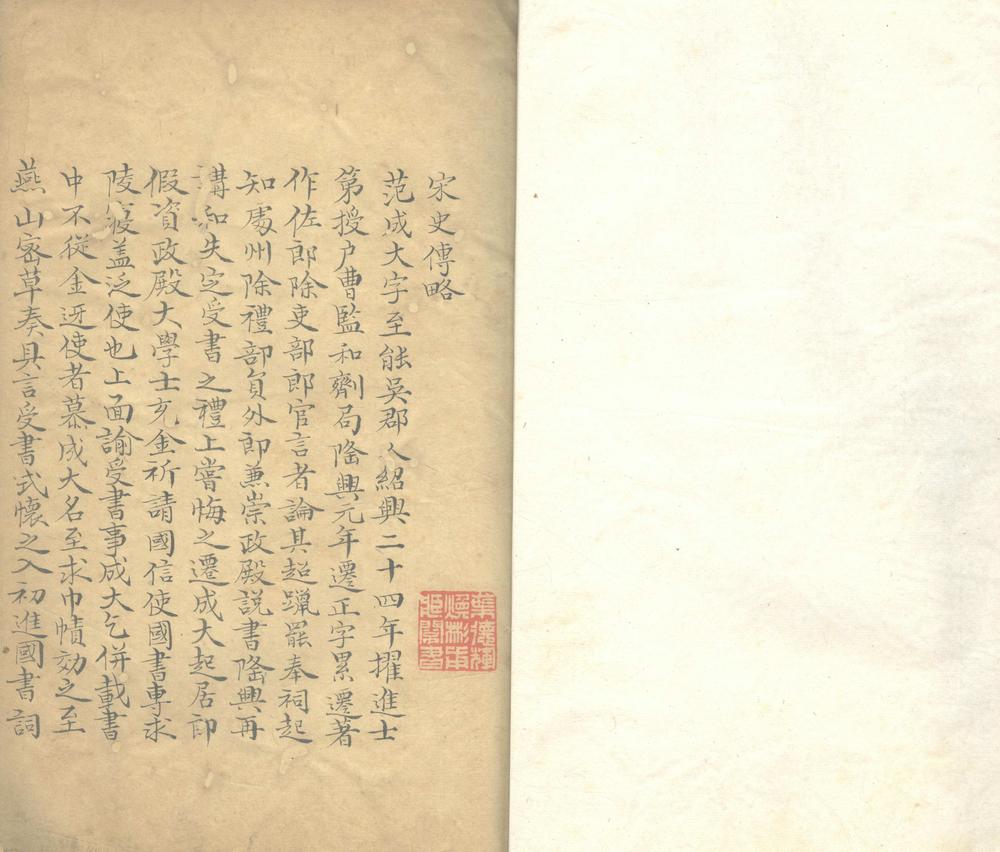 宋史傳略
范成大字至能吳郡人紹興二十四年擢進士
第授户曹監和劑局隆興元年遷正字累遷著
作佐郎除吏部郎官言者論其超躐罷奉祠起
知處州除禮部員外郎兼崇政殿說書隆興再
講和失定受書之禮上嘗悔之遷成大起居郎
假資政殿大學士充金祈請國信使國書專求
陵寢盖泛使也上面諭受書事成大乞併載書
中不從金迓使者慕成大名至求巾幘効之至
燕山密草奏具言受書式懷之入初進國書詞
葉德輝
煥彬甫
藏閱書